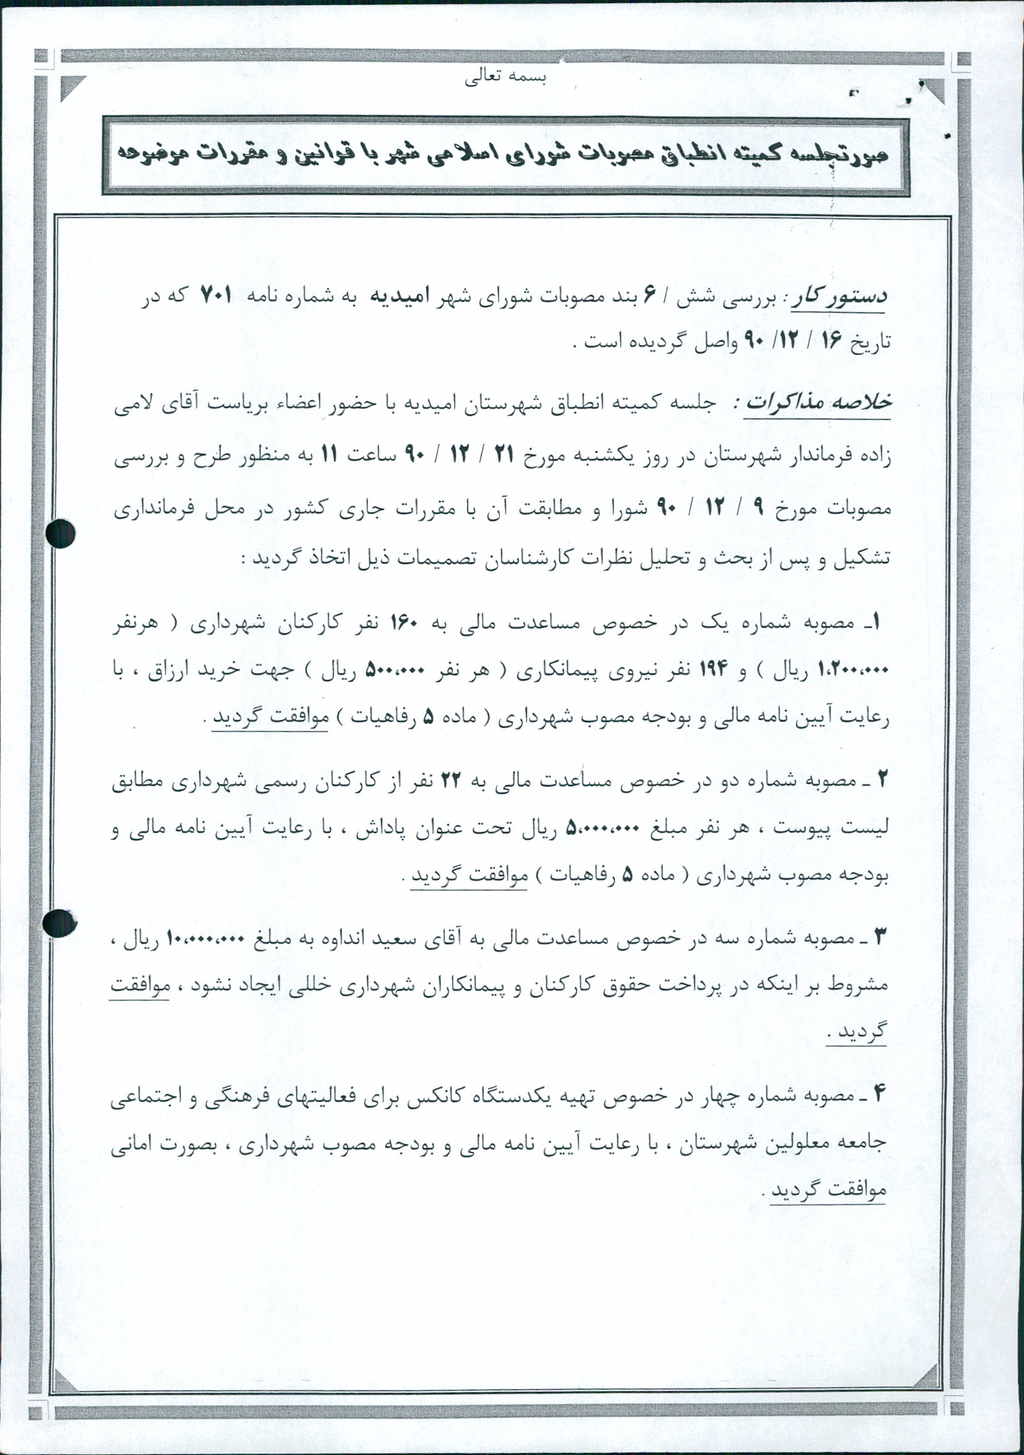 بسمه تعالی
صورتجلسه کمیته انطباق مصوبات شورای اسلامی شهر با قوانین و مقررات موضوعه
دستور کار : بررسی شش / ۶ بند مصوبات شورای شهر امیدیه به شماره نامه ۷۰۱ که در
تاریخ ۱۶ / ۱۲ / ۹۰ واصل گردیده است .
خلاصه مذاکرات : جلسه کمیته انطباق شهرستان امیدیه با حضور اعضاء بریاست آقای لامی
زاده فرماندار شهرستان در روز یکشنبه مورخ ۲۱ / ۱۲ / ۹۰ ساعت ۱۱ به منظور طرح و بررسی
مصوبات مورخ ۹ / ۱۲ / ۹۰ شورا و مطابقت آن با مقررات جاری کشور در محل فرمانداری
تشکیل و پس از بحث و تحلیل نظرات کارشناسان تصمیمات ذیل اتخاذ گردید :
۱ـ مصوبه شماره یک در خصوص مساعدت مالی به ۱۶۰ نفر کارکنان شهرداری ( هرنفر
۱،۲۰۰،۰۰۰ ریال ) و ۱۹۴ نفر نیروی پیمانکاری ( هر نفر ۵۰۰،۰۰۰ ریال ) جهت خرید ارزاق ، با
رعایت آیین نامه مالی و بودجه مصوب شهرداری ( ماده ۵ رفاهیات ) موافقت گردید .
۲ ـ مصوبه شماره دو در خصوص مساعدت مالی به ۲۲ نفر از کارکنان رسمی شهرداری مطابق
لیست پیوست ، هر نفر مبلغ ۵،۰۰۰،۰۰۰ ریال تحت عنوان پاداش ، با رعایت آیین نامه مالی و
بودجه مصوب شهرداری ( ماده ۵ رفاهیات ) موافقت گردید .
۳ ـ مصوبه شماره سه در خصوص مساعدت مالی به آقای سعید انداوه به مبلغ ۱۰،۰۰۰،۰۰۰ ریال ،
مشروط بر اینکه در پرداخت حقوق کارکنان و پیمانکاران شهرداری خللی ایجاد نشود ، موافقت
گردید .
۴ ـ مصوبه شماره چهار در خصوص تهیه یکدستگاه کانکس برای فعالیتهای فرهنگی و اجتماعی
جامعه معلولین شهرستان ، با رعایت آیین نامه مالی و بودجه مصوب شهرداری ، بصورت امانی
موافقت گردید .